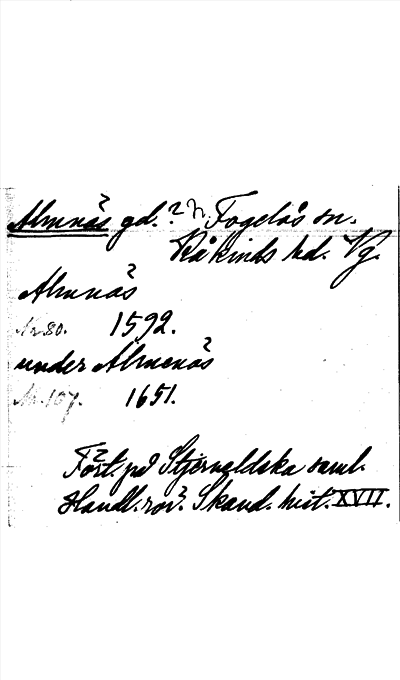 Almnäs gd. ? n. Fogelås sn.
Kåkinds hd. Vg.
Almnäs
Nr. 80. 1592.
under Almenäs
Nr. 107. 1651.
Fört. på Stjerneldska saml.
Handl. rör. Skand. hist. XVII.